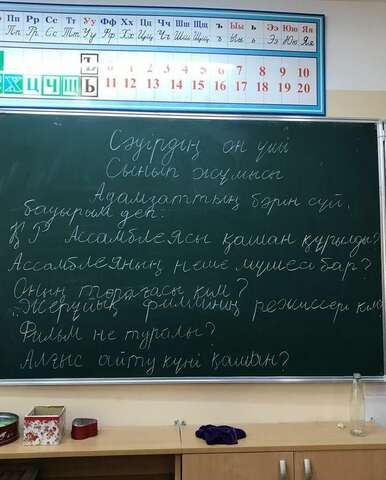 Пп Рр Сс Тт Уу Фф Хх Цц Чч Шш Щщ ъ Ыы ь Ээ Юю Яя
Пп Рр Сс Тт Уу Фф Хх Цц Чч Шш Щщ ъ Ыы ь Ээ Юю Яя
1 2 3 4 5 6 7 8 9 10
11 12 13 14 15 16 17 18 19 20
Х Ц Ч Щ Ъ Ь
Сәуірдің он үші
Сынып жұмысы
Адамзаттың бәрін сүй,
бауырым деп.
ҚР Ассамблеясы қашан құрылды?
Ассамблеяның неше мүшесі бар?
Оның төрағасы кім?
"Жерұйық" фильмінің режиссері кім
Фильм не туралы?
Алғыс айту күні қашан?